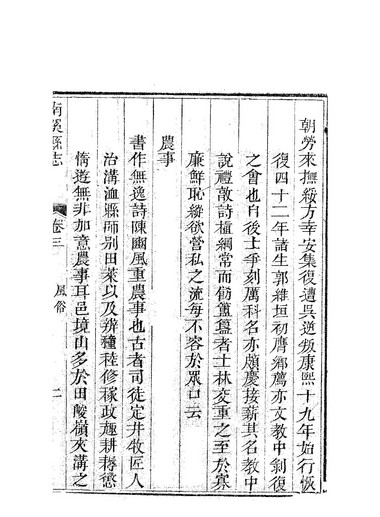 朝勞來撫綏方幸安集復遭吳逆叛康熙十九年始行恢
復四十二年諸生郭維垣初膺鄉薦亦文教中剝復
之會也自後士爭刻厲科名亦頗慶接薪其名教中
說禮敦詩植綱常而飭簠簋者士林交重之至於寡
廉鮮恥縱欲營私之流每不容於眾口云
農事
書作無逸詩陳豳風重農事也古者司徒定井牧匠人
治溝洫縣師別田萊以及辨種稑修稼政趣耕耨懲
惰遊無非加意農事耳邑境山多於田酸嶺夾溝之
南溪縣志
卷三
風俗
二